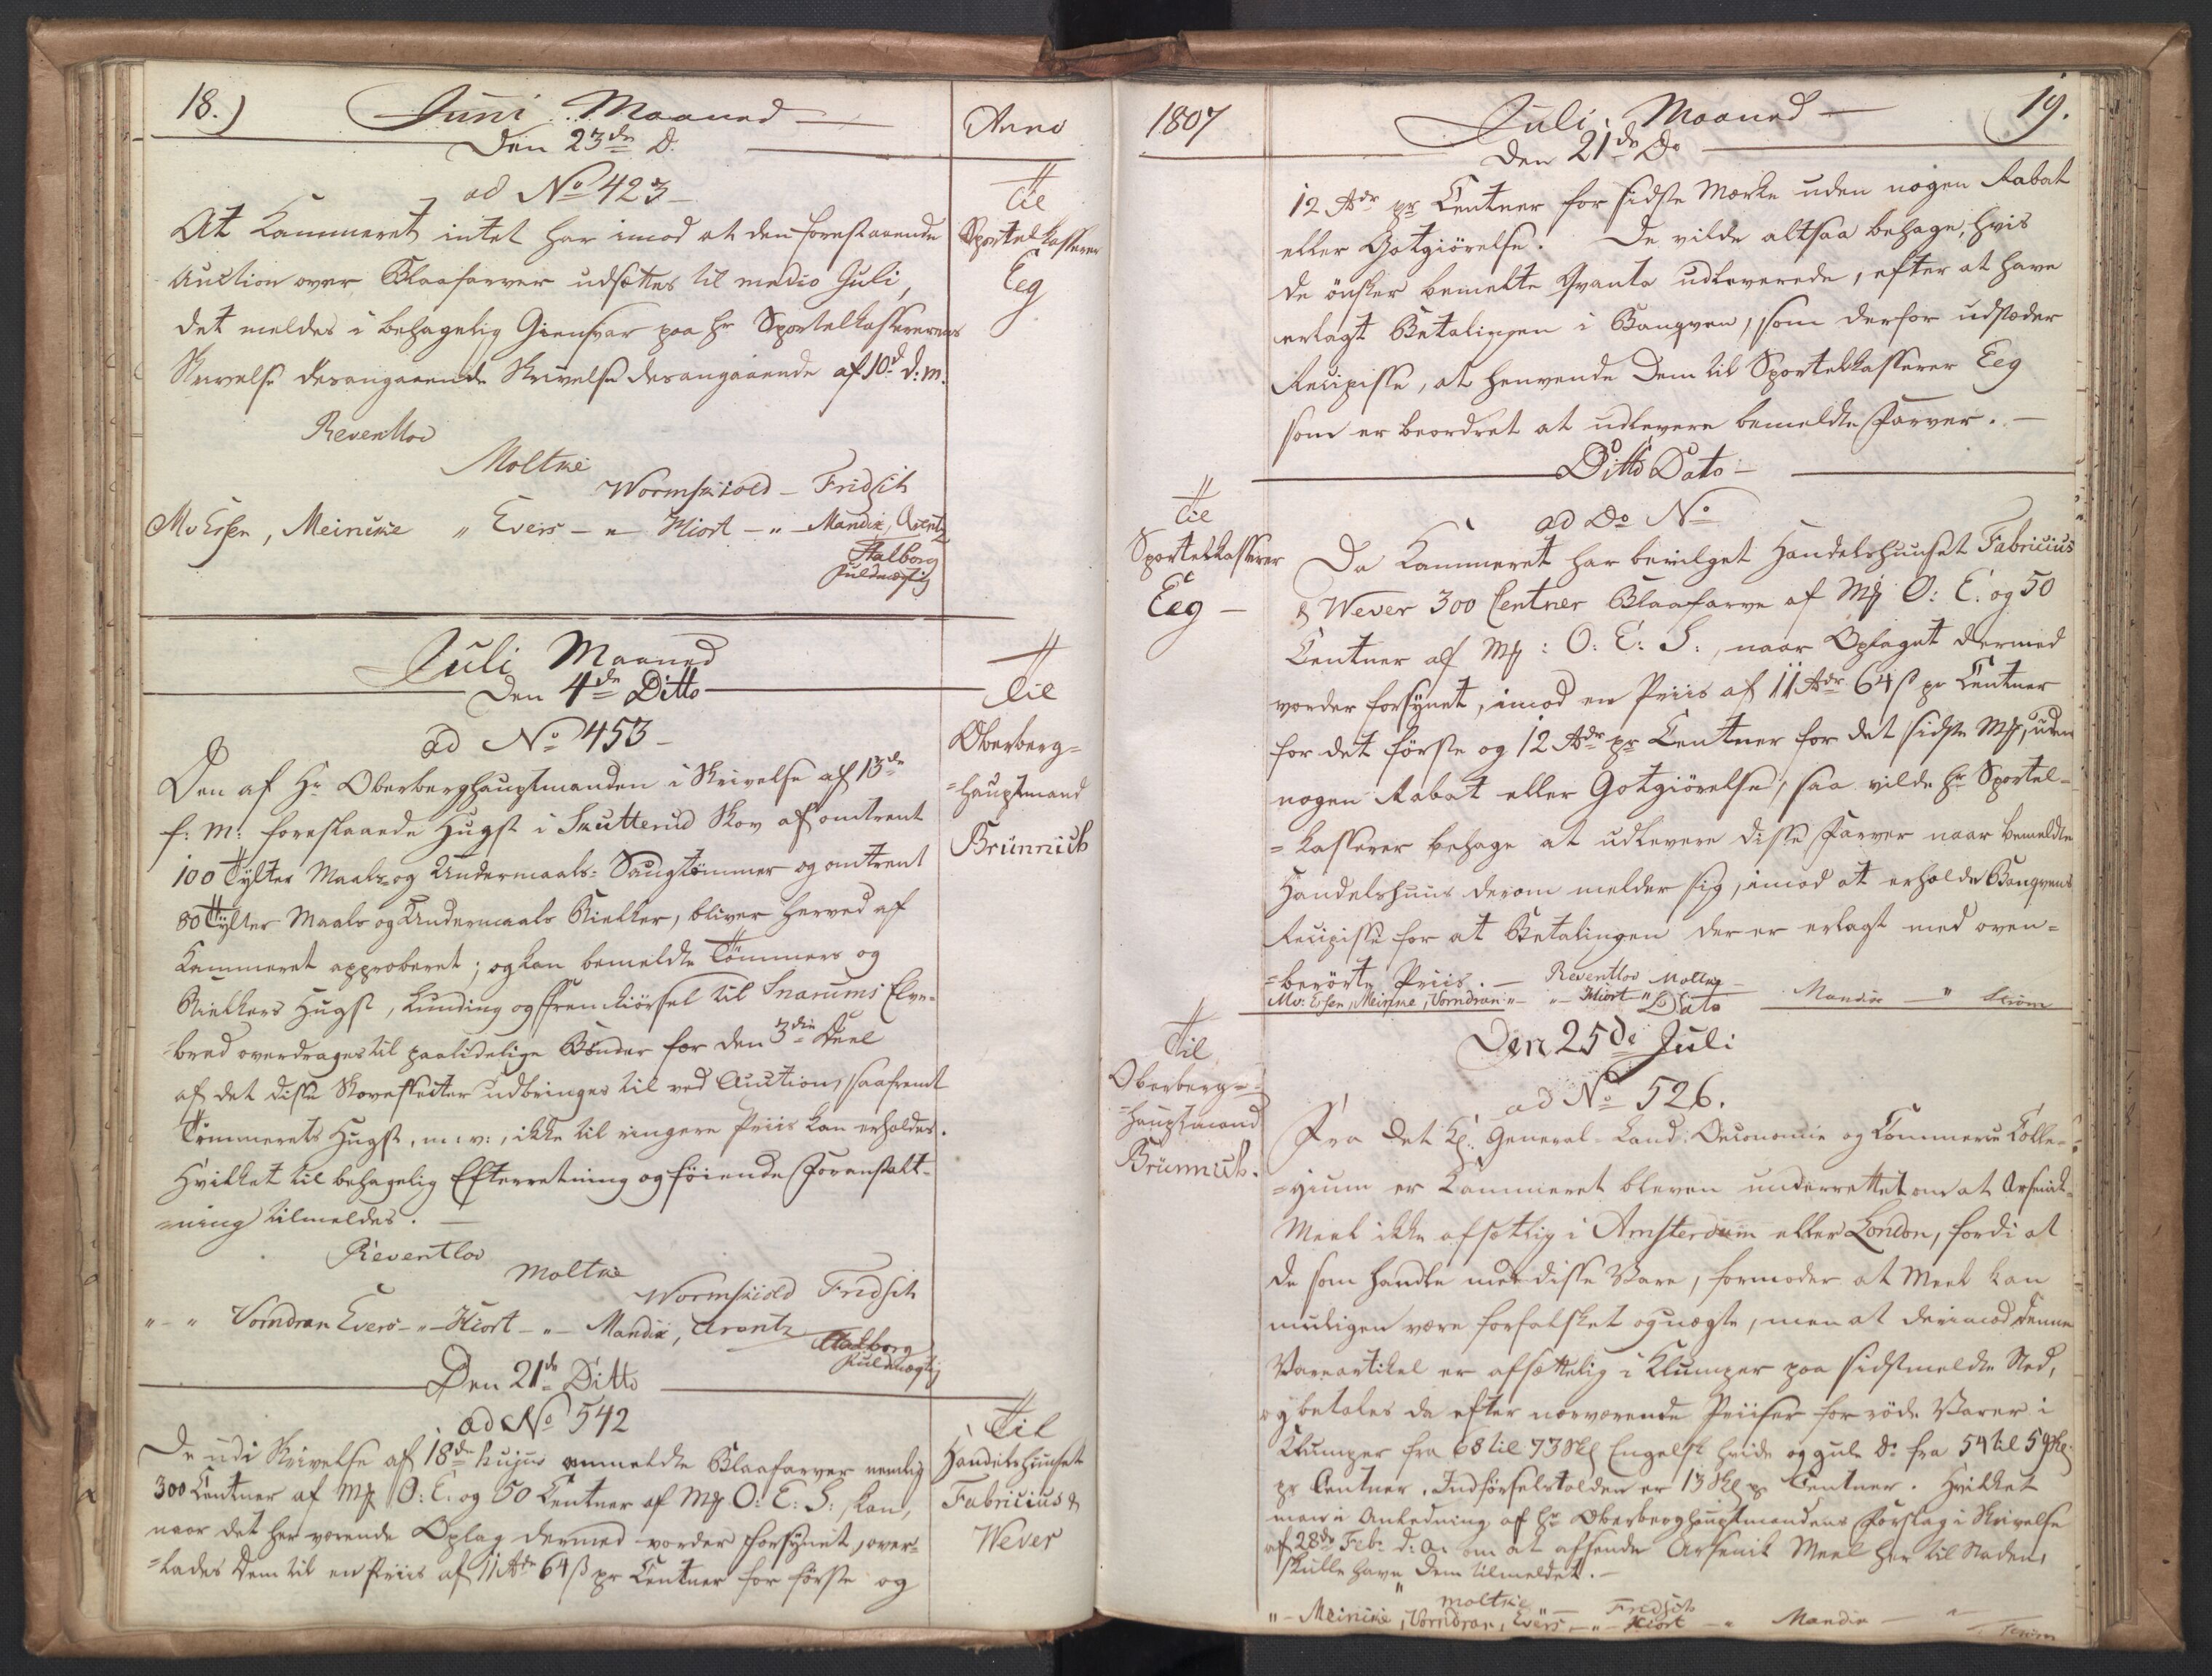 18.) Juni Maaned Anno
Den 23de D.
ad No 423
Til
Sportelkasserer
Eeg
At Kammeret intet har imod at den forestaaende
Auction over Blaafarver udsættes til medio Juli,
det meldes i behagelig Giensvar paa Hr Sportelkassererens
Skrivelse desangaaende Skrivelse desangaaende af 10d d: m.
Reventlov
Moltke
Wormskiold - Fridsch
MvEssen, Meincke " Evers - " - Hiort - " - Mandix, Arentz
Aalborg
fuldmægtig
Juli Maaned
Den 4de Ditto
ad No 453
Til
Oberberg=
=hauptmand
Brünnich
Den af Hr Oberberghauptmanden i Skrivelse af 13de
f: m: foreslaaede Hugst i Skutterud Skov af omtrent
100 Tylter Maals- og Undermaals- Saugtømmer og omtrent
80 Tylter Maals og Undermaals Kielker, bliver herved af
Kammeret approberet; og kan bemeldte Tømmers og
Kielkers Hugst, Lunding og Fremkiørsel til Snarums Elve-
bred overdrages til paalidelige Bønder for den 3die Deel
af det disse Skoveffecter udbringes til ved Auction, saafremt
Tømmerets Hugst, m: v:, ikke til ringere Priis kan erholdes.
Hvilket til behagelig Efterretning og føiende Foranstalt-
ning tilmeldes.
Reventlov
Moltke
Wormskiold Fridsch
" - " Vorndran Evers - " - Hiort - " - Mandix, Arentz
Aalborg
fuldmægtig
Den 21de Ditto
ad No 542
Til
Handelshuuset
Fabricius &
Wever
De udi Skrivelse af 18de hujus anmeldte Blaafarver nemlig
300 Centner af Mk O: C: og 50 Centner af Mk O: E: S: kan,
naar det her værende Oplag dermed vorder forsynet, over-
=lades Dem til en Priis af 11 Rdr 64 ß pr Centner for første og
1807 Juli Maaned 19.
Den 21de Do
12 Rdr pr Centner for sidste Mærke uden nogen Rabat
eller Gotgiörelse. De vilde altsaa behage, hvis
De önsker bemeldte Qvanta udleverede, efter at have
erlagt Betalingen i Banqven, som derfor udstæder
Recipisse, at henvende Dem til Sportelkasserer Eeg
som er beordret at udlevere bemeldte Farver.
Ditto Dato
Til
Sportelkasserer
Eeg
ad Do No
Da Kammeret har bevilget Handelshuuset Fabricius
& Wever 300 Centner Blaafarve af Mk O: C: og 50
Centner af Mk: O: E: S:, naar Oplaget dermed
vorder forsynet, imod en Priis af 11 Rdr 64 ß pr Centner
for det første og 12 Rdr pr Centner for det sidste Mk, uden
nogen Rabat eller Gotgiörelse, saa vilde Hr Sportel-
=kasserer behage at udlevere disse Farver naar bemeldte
Handelshuus derom melder sig, imod at erholde Banqvens
Recipisse for at Betalingen der er erlagt med oven=
=berörte Priis. - Reventlov Moltke
Mv: Essen, Meincke, Vorndran " - " - Hiort " Mandix - "
Dato
Den 25de Juli
Til
Oberberg=
=hauptmand
Brünnich.
ad No 526.
Fra det Kgl: General-Land-Oeconomie og Commerce Colle-
=gium er Kammeret bleven underrettet om at Arsenik-
Meel ikke afsætlig i Amsterdam eller London, fordi at
de som handle med disse Vare, formoder at Meel kan
muligen være forfalsket og uægte, men at derimod denne
Vareartikel er afsættelig i Klumper paa sidstmeldte Sted,
og betales da efter nærværende Priiser for röde Varer i
Klumper fra 68 til 73 Skl Engelsk hvide og gule Do fra 54 til 59 Skl
pr Centner. Indförselstolden er 13 Skl pr Centner. Hvilket
man i Anledning af Hr Oberberghauptmandens Forslag i Skrivelse
af 28de Feb: d: a: om at afsende Arsenik Meel her til Staden,
skulle have Dem tilmeldet. -
" Moltke " - Fridsch
" - Meincke, Vorndran, Evers - " - Hiort - " Mandix "